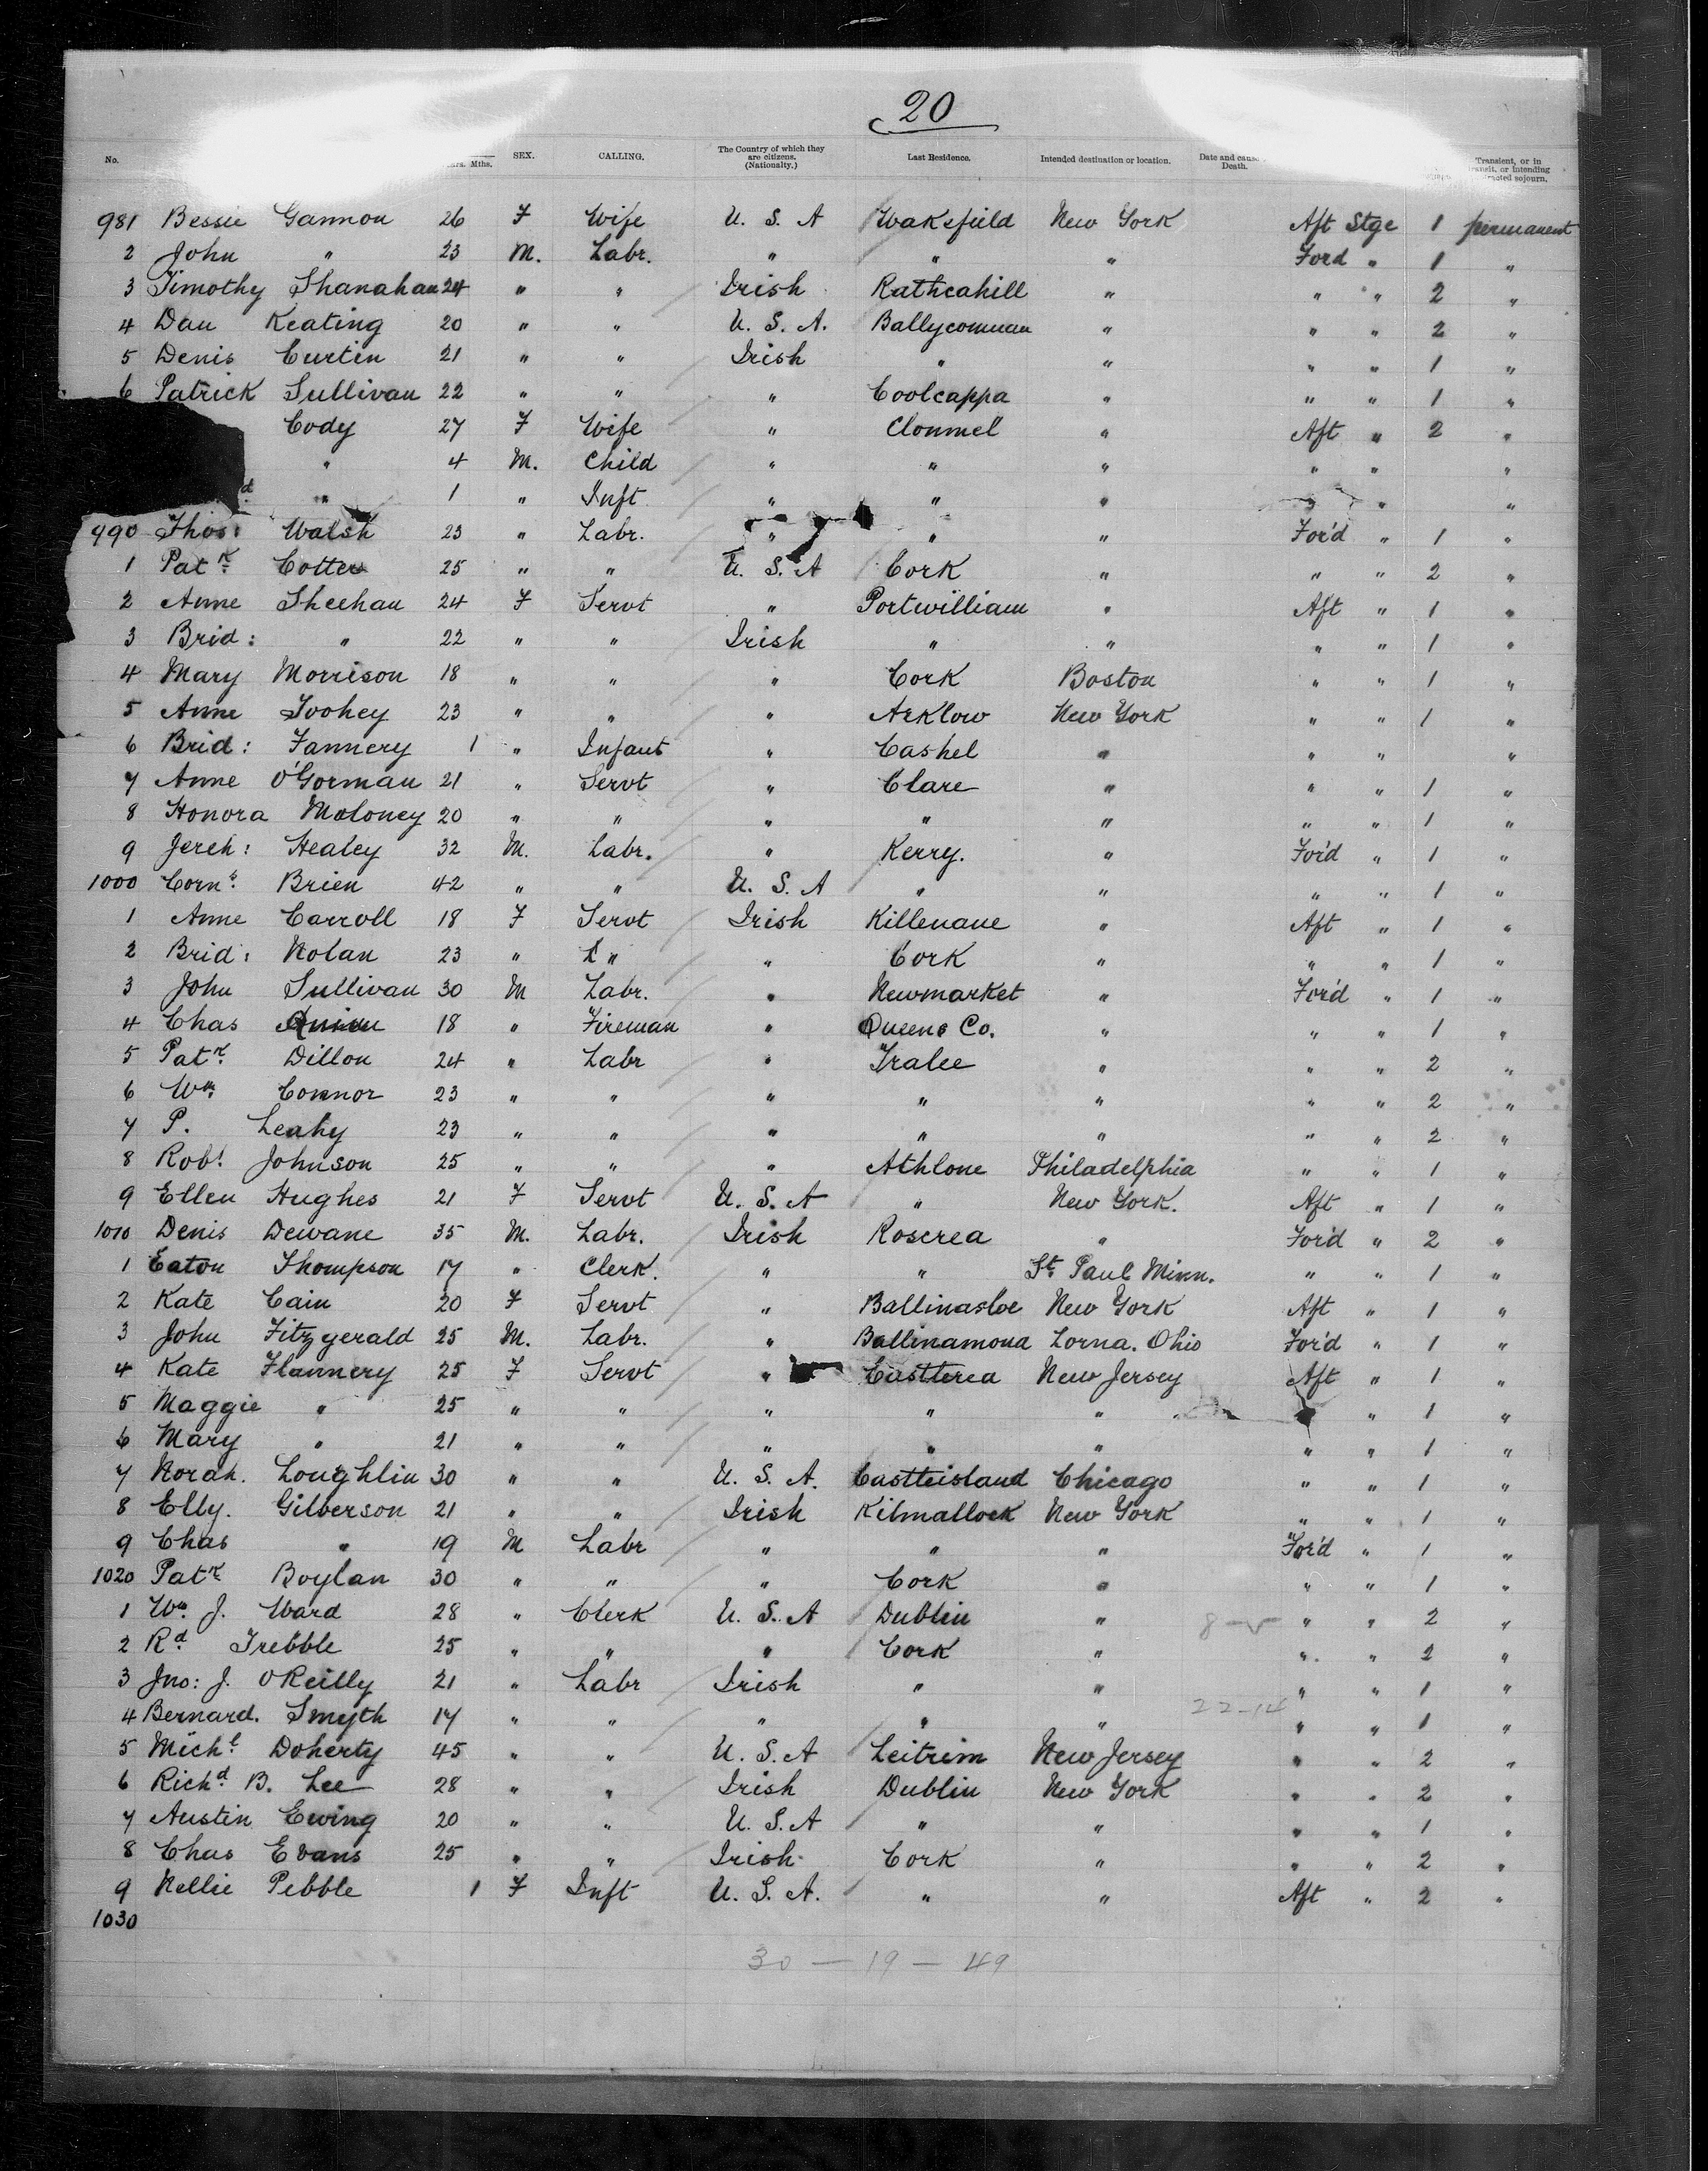 20
No. ars. Mths. SEX. CALLING. The Country of which they are citizens. (Nationalty.) Last Residence. Intended destination or location. Date and cause Death. Transient, or in transit, or intending protracted sojourn.
981 Bessie Gannon 26 F Wife U. S. A Wakefield New York Aft Stge 1 permanent
2 John " 23 M. Labr. " " " Ford " 1 "
3 Timothy Shanahan 24 " " Irish Rathcahill " " " 2 "
4 Dan Keating 20 " " U. S. A. Ballycommon " " " 2 "
5 Denis Curtin 21 " " Irish " " " " 1 "
6 Patrick Sullivan 22 " " " Coolcappa " " " 1 "
Cody 27 F Wife " Clonmel " Aft " 2 "
" 4 M. Child " " " " " "
d " 1 " Inft " " " " "
990 Thos: Walsh 23 " Labr. " " " For'd " 1 "
1 Patk Cotter 25 " " U. S. A Cork " " " 2 "
2 Anne Sheehan 24 F Servt " Portwilliam " Aft " 1 "
3 Brid: " 22 " " Irish " " " " 1 "
4 Mary Morrison 18 " " " Cork Boston " " 1 "
5 Anne Toohey 23 " " " Arklow New York " " 1 "
6 Brid: Fannery 1 " Infant " Cashel " " " "
7 Anne O'Gorman 21 " Servt " Clare " " " 1 "
8 Honora Moloney 20 " " " " " " " 1 "
9 Jereh: Healey 32 M. Labr. " Kerry. " For'd " 1 "
1000 Corns Brien 42 " " U. S. A " " " " 1 "
1 Anne Carroll 18 F Servt Irish Killenane " Aft " 1 "
2 Brid: Nolan 23 " " " Cork " " " 1 "
3 John Sullivan 30 M Labr. " Newmarket " For'd " 1 "
4 Chas 18 " Fireman " Queens Co. " " " 1 "
5 Patk Dillon 24 " Labr " Tralee " " " 2 "
6 Wm Connor 23 " " " " " " " 2 "
7 P. Leahy 23 " " " " " " " 2 "
8 Robt Johnson 25 " " " Athlone Philadelphia " " 1 "
9 Ellen Hughes 21 F Servt U. S. A " New York. Aft " 1 "
1010 Denis Dewane 35 M. Labr. Irish Roscrea " For'd " 2 "
1 Eaton Thompson 17 " Clerk. " " St. Paul Minn. " " 1 "
2 Kate Cain 20 F Servt " Ballinasloe New York Aft " 1 "
3 John Fitzgerald 25 M. Labr. " Ballinamona Lorna. Ohio For'd " 1 "
4 Kate Flannery 25 F Servt " Castlerea New Jersey Aft " 1 "
5 Maggie " 25 " " " " " " 1 "
6 Mary " 21 " " " " " " " 1 "
7 Norah. Loughlin 30 " " U. S. A. Castleisland Chicago " " 1 "
8 Elly. Gilberson 21 " " Irish Kilmallock New York " " 1 "
9 Chas " 19 M Labr " " " For'd " 1 "
1020 Patk Boylan 30 " " " Cork " " " 1 "
1 Wm J. Ward 28 " Clerk U. S. A Dublin " " " 2 "
2 Rd Trebble 25 " " " Cork " " " 2 "
3 Jno: J. OReilly 21 " Labr Irish " " " " 1 "
4 Bernard. Smyth 17 " " " " " 22-14 " " 1 "
5 Michl Doherty 45 " " U. S. A Leitrim New Jersey " " 2 "
6 Richd B. Lee 28 " " Irish Dublin New York " " 2 "
7 Austin Ewing 20 " " U. S. A " " " " 1 "
8 Chas Evans 25 " " Irish Cork " " " 2 "
9 Nellie Pebble 1 F Inft U. S. A. " " Aft " 2 "
1030
30 — 19 — 49